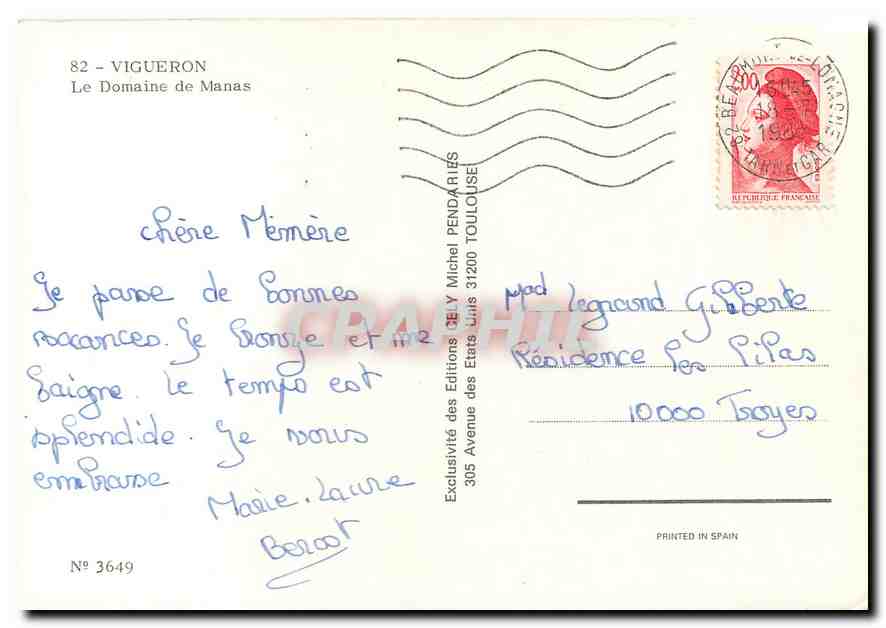 82 - VIGUERON
Le Domaine de Manas
chère Mémère
Je passe de bonnes
vacances. Je bronze et me
baigne. Le temps est
splendide. Je vous
embrasse
Marie-Laure
Nº 3649
Exclusivité des Editions CELY Michel PENDARIES
305 Avenue des Etats Unis 31200 TOULOUSE
CPARAMA
2,00
REPUBLIQUE FRANÇAISE
82 BEAUMONT-DE-LOMAGNE
TARN ET GAR
Mad Legrand Gilberte
Résidence les Lilas
10000 Troyes
PRINTED IN SPAIN